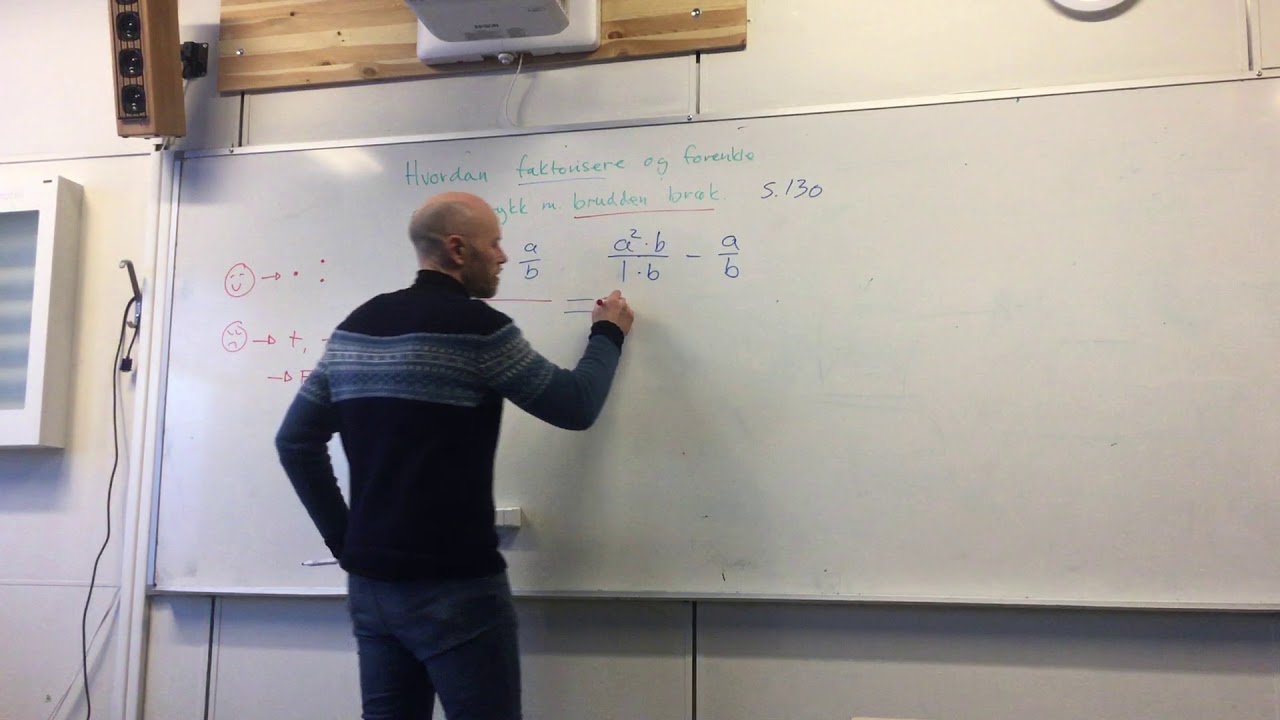 EPSON
Hvordan faktorisere og forenkle
m. brudden brøk. S.130
a/b a²·b/1·b - a/b
→ · :
=
→ +,
→